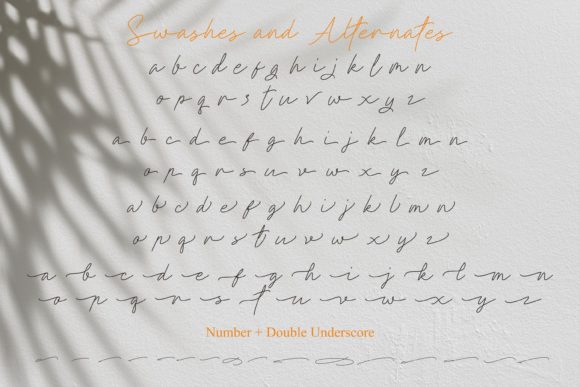 Swashes and Alternates
a b c d e f g h i j k l m n
o p q r s t u v w x y z
a b c d e f g h i j k l m n
o p q r s t u v w x y z
a b c d e f g h i j k l m n
o p q r s t u v w x y z
a b c d e f g h i j k l m n
o p q r s t u v w x y z
Number + Double Underscore